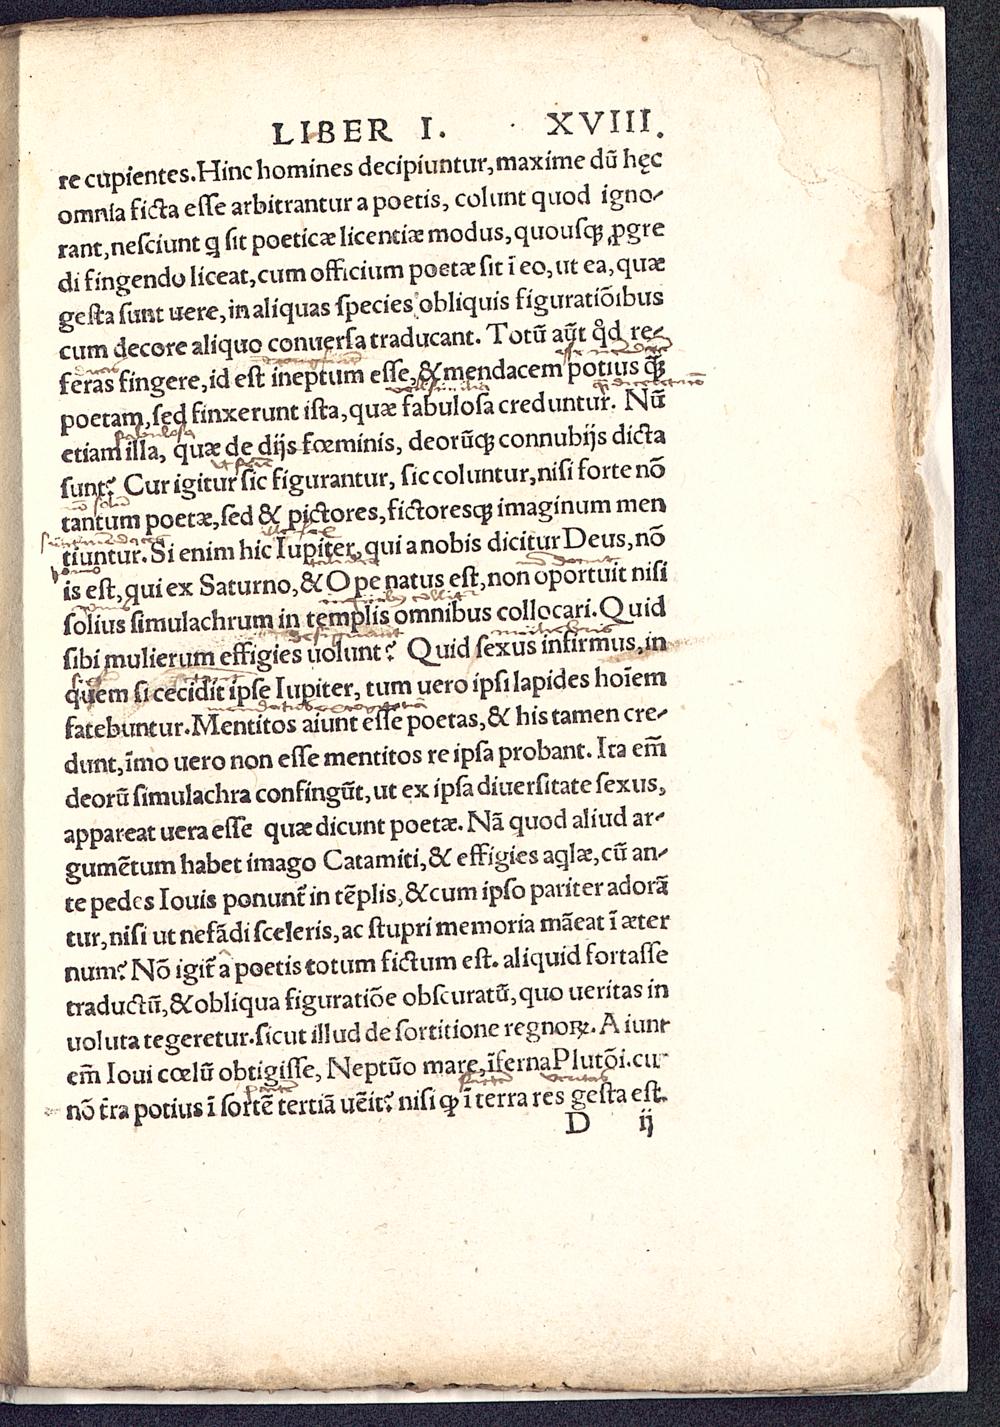 LIBER I. XVIII.
re cupientes. Hinc homines decipiuntur, maxime dũ hęc
omnia ficta eſſe arbitrantur a poetis, colunt quod igno-
rant, neſciunt ꝗ ſit poeticæ licentiæ modus, quouſqꝫ ꝓgre
di fingendo liceat, cum officium poetæ ſit ĩ eo, ut ea, quæ
geſta ſunt uere, in aliquas ſpecies obliquis figuratiõibus
cum decore aliquo conuerſa traducant. Totũ aũt qd̊ re-
feras fingere, id eſt ineptum eſſe, & mendacem potius ꝗ̃ꝫ
poetam, ſed finxerunt iſta, quæ fabuloſa creduntur. Nũ
etiam illa, quæ de dijs fœminis, deorũqꝫ connubijs dicta
fabuloſa
ſunt? Cur igitur ſic figurantur, ſic coluntur, niſi forte nõ
tantum poetæ, ſed & pictores, fictoresqꝫ imaginum men
tiuntur. Si enim hic Iupiter, qui a nobis dicitur Deus, nõ
homo
is eſt, qui ex Saturno, & Ope natus eſt, non oportuit niſi
ſolius ſimulachrum in templis omnibus collocari. Quid
ſibi mulierum effigies uolunt? Quid ſexus infirmus, in
quem ſi cecidit ipſe Iupiter, tum uero ipſi lapides hoīem
fatebuntur. Mentitos aiunt eſſe poetas, & his tamen cre-
dunt, ĩmo uero non eſſe mentitos re ipſa probant. Ita em̃
deorũ ſimulachra confingũt, ut ex ipſa diuerſitate ſexus,
appareat uera eſſe quæ dicunt poetæ. Nã quod aliud ar-
gumẽtum habet imago Catamiti, & effigies aꝗlæ, cũ an-
te pedes Iouis ponunt̃ in tẽplis, & cum ipſo pariter adorã
tur, niſi ut nefãdi ſceleris, ac ſtupri memoria mãeat ĩ æter
num? Nõ igit̃ a poetis totum fictum eſt. aliquid fortaſſe
traductũ, & obliqua figuratiõe obſcuratũ, quo ueritas in
uoluta tegeretur. ſicut illud de ſortitione regnoꝝ. Aiunt
em̃ Ioui cœlũ obtigiſſe, Neptũo mare, ĩferna Plutõi. cur
veritas
nõ t̃ra potius ĩ ſortẽ tertiã uẽit? niſi ꝙ ĩ terra res geſta eſt.
D ij